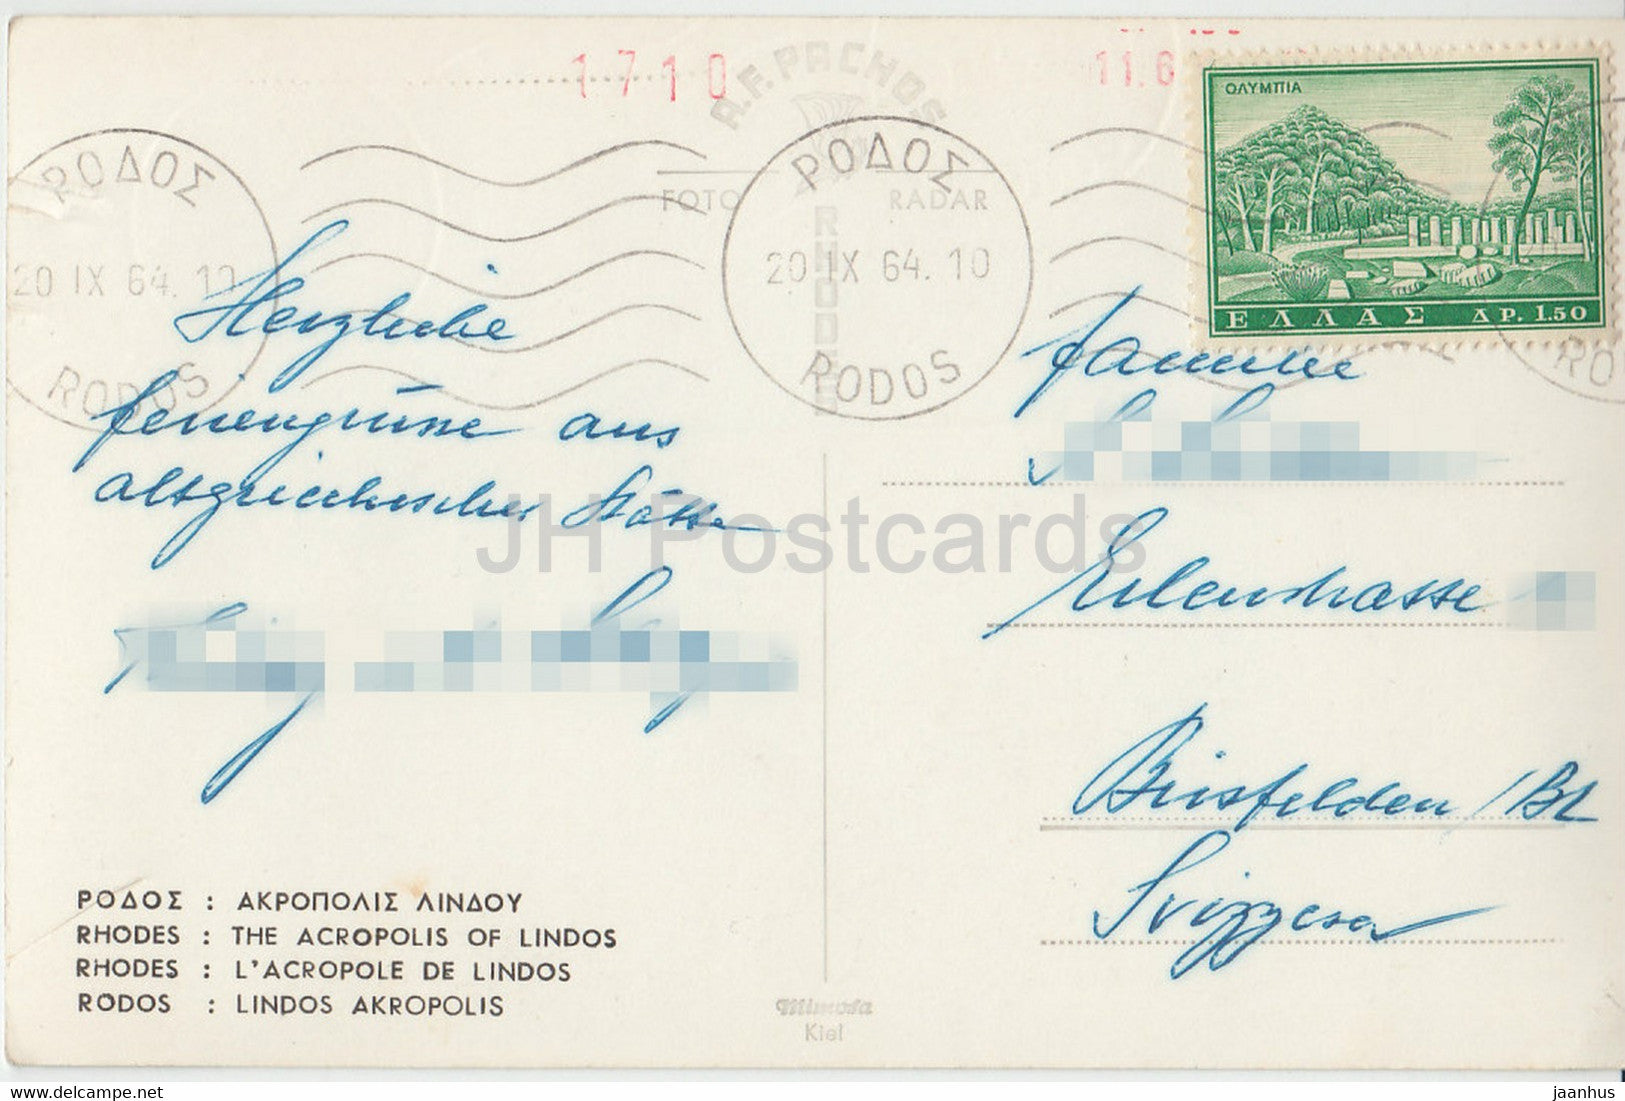 1710
11.6
A.F. PACHOS
RHODES
FOTO RADAR
ΡΟΔΟΣ
20 IX 64.10
RODOS
ΡΟΔΟΣ
20 IX 64.10
RODOS
ΟΛΥΜΠΙΑ
ΕΛΛΑΣ ΔΡ. 1.50
Herzliche
feriengrüsse aus
altgriechischer Stätte
Familie
Erlenstrasse
Birsfelden / BL
Svizzera
JH Postcards
ΡΟΔΟΣ : ΑΚΡΟΠΟΛΙΣ ΛΙΝΔΟΥ
RHODES : THE ACROPOLIS OF LINDOS
RHODES : L'ACROPOLE DE LINDOS
RODOS : LINDOS AKROPOLIS
Mimosa
Kiel
www.delcampe.net
jaanhus